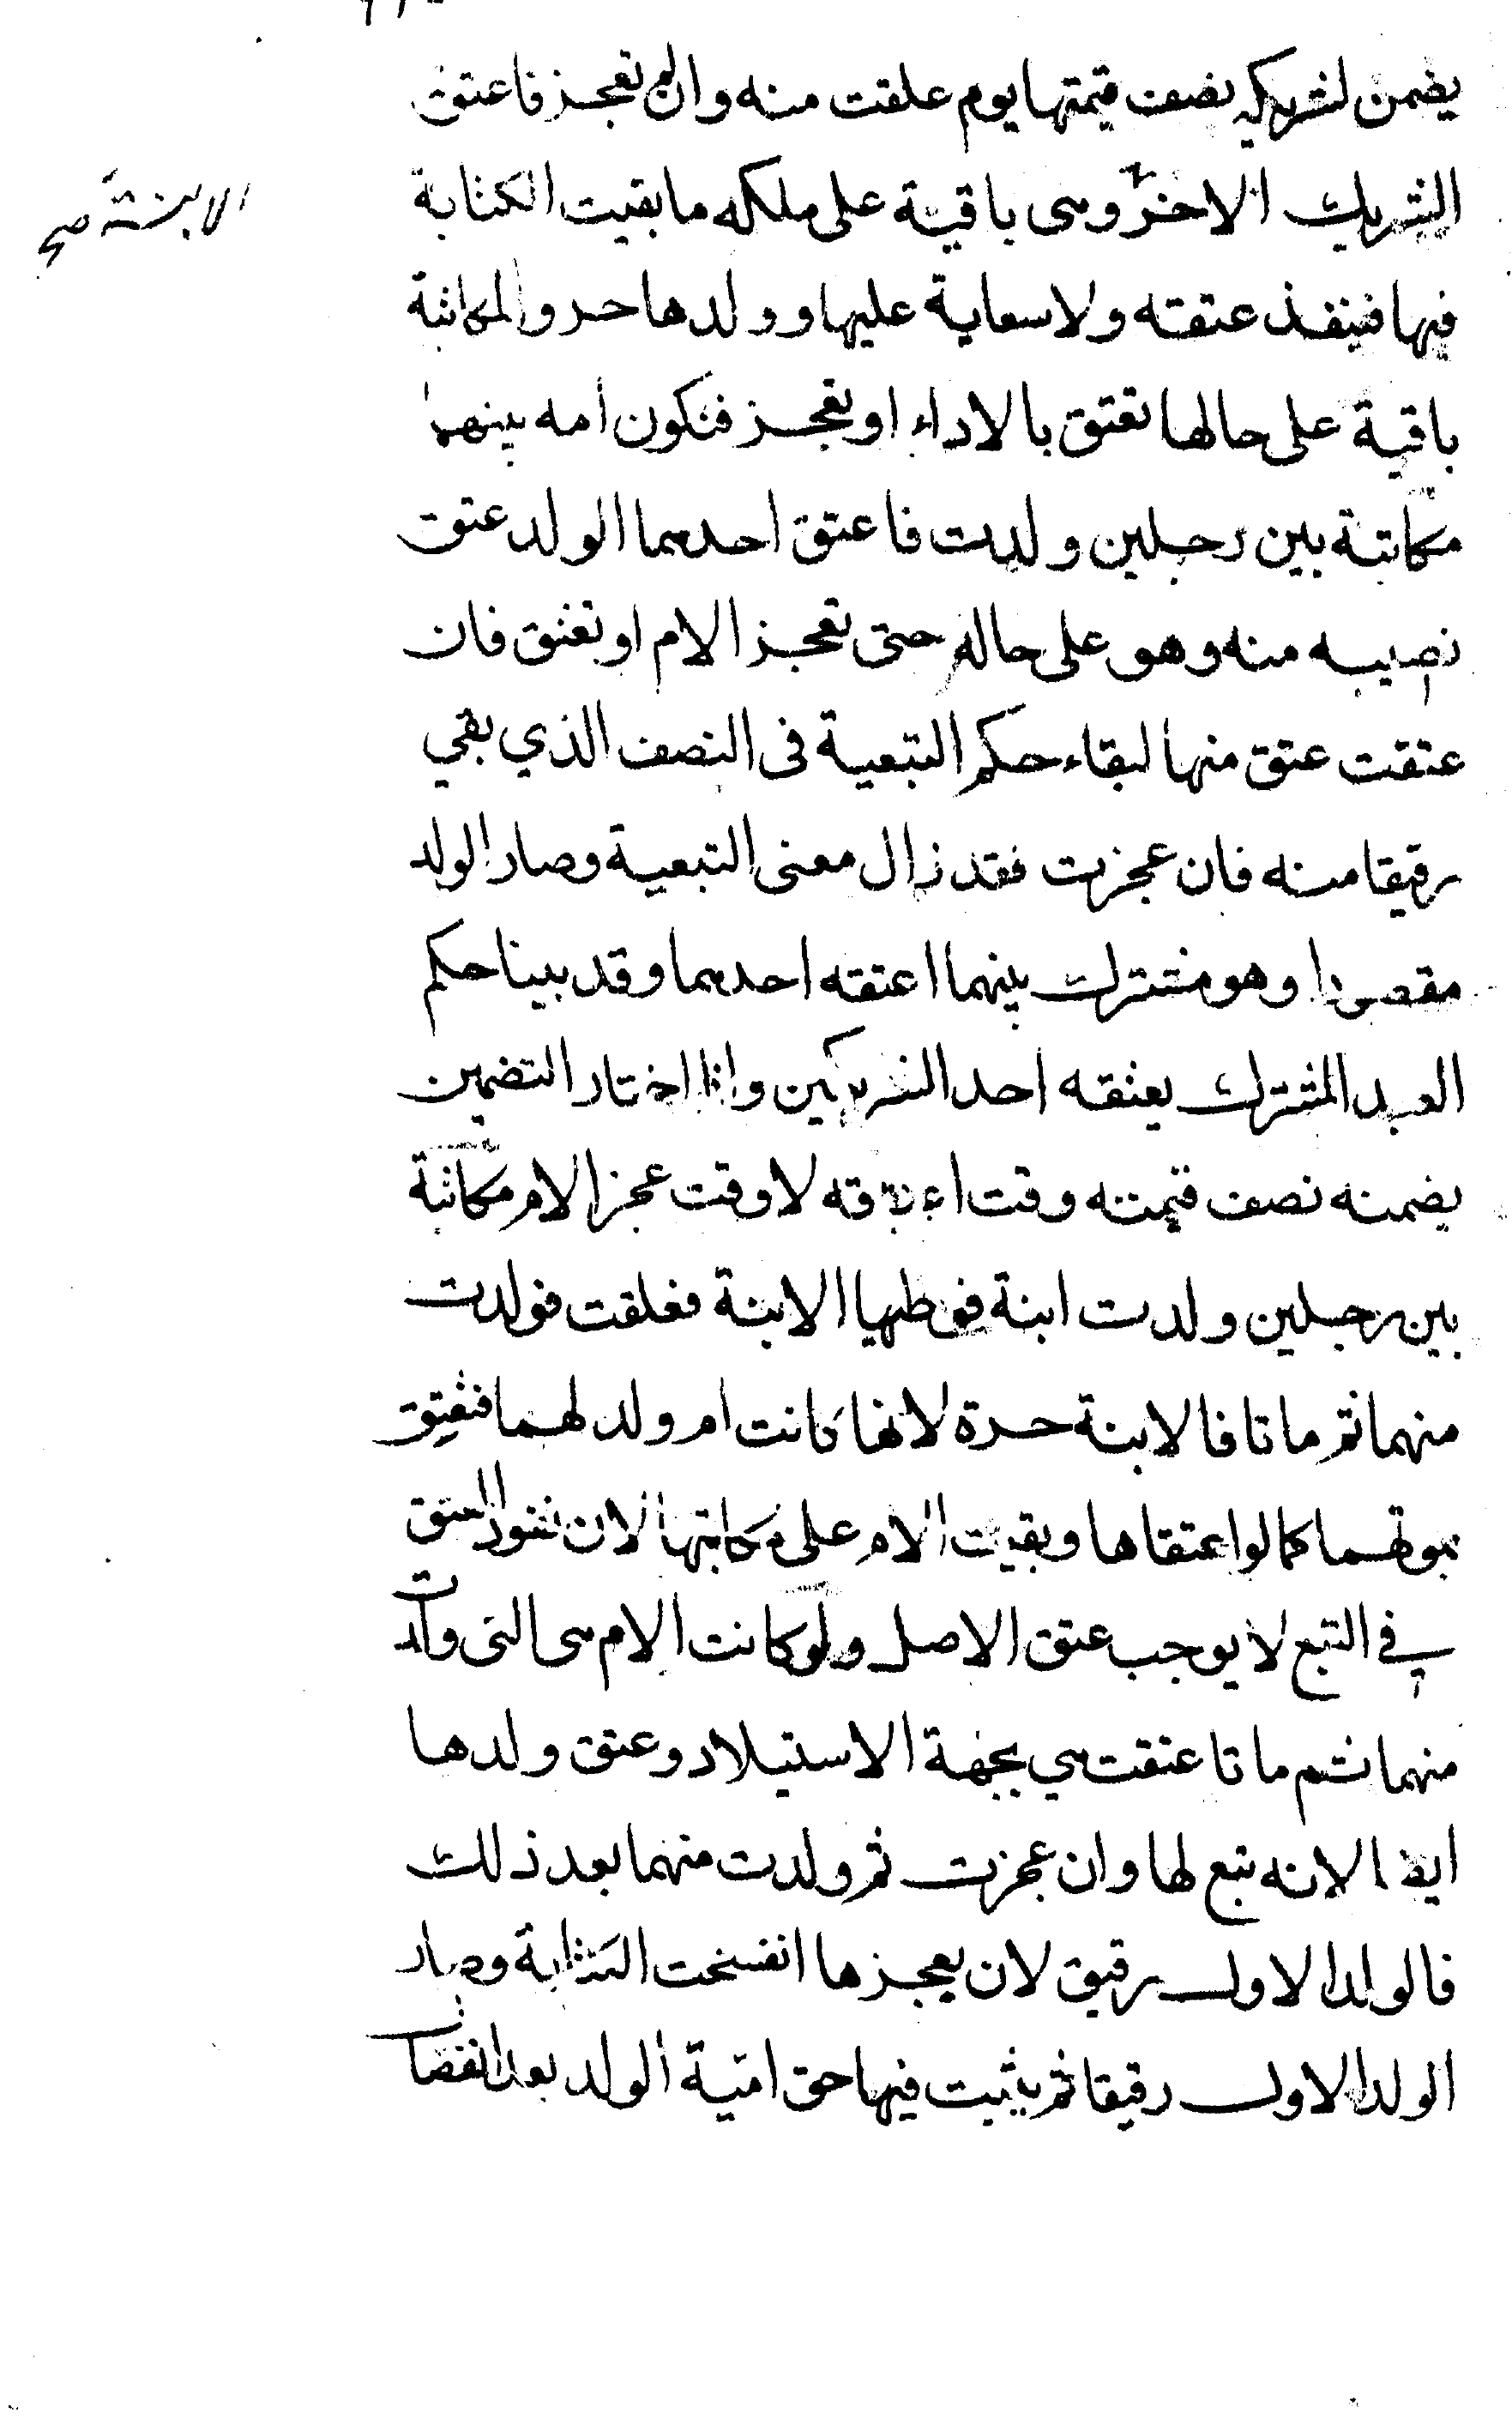 يضمن لشريكه نصف قيمتها يوم علقت منه وان لم تعجز فاعتق
الشريك الاخر وهى باقية على ملكه ما بقيت الكتابة
الابنة صح
فيها فينفذ عتقه ولا سعاية عليها وولدها حر والمكاتبة
باقية على حالها تعتق بالاداء او تعجز فتكون امه بينهما
مكاتبة بين رجلين ولدت فاعتق احدهما الولد عتق
نصيبه منه وهو على حاله حتى تعجز الام او تعتق فان
عتقت عتق منها لبقاء حكم التبعية فى النصف الذي بقي
رقيقا منه فان عجزت فقد زال معنى التبعية وصار الولد
مقصودا وهو مشترك بينهما اعتقه احدهما وقد بينا حكم
العبد المشترك يعتقه احد الشريكين واذا اختار التضمين
يضمنه نصف قيمته وقت اعتاقه لا وقت عجز الام مكاتبة
بين رجلين ولدت ابنة فوطيها الابنة فعلقت فولدت
منهما ثم ماتا فالابنة حرة لانها كانت ام ولد لهما فتعتق
بموتهما كما لو اعتقاها وبقيت الام على مكاتبتها لان نفوذ العتق
في التبع لا يوجب عتق الاصل ولو كانت الام هى التى ولدت
منهما ثم ماتا عتقت هي بجهة الاستيلاد وعتق ولدها
ايضا لانه تبع لها وان عجزت ثم ولدت منهما بعد ذلك
فالولد الاول رقيق لان بعجزها انفسخت الكتابة وصار
الولد الاول رقيقا ثم يثبت فيها حق امية الولد بعد انفصال